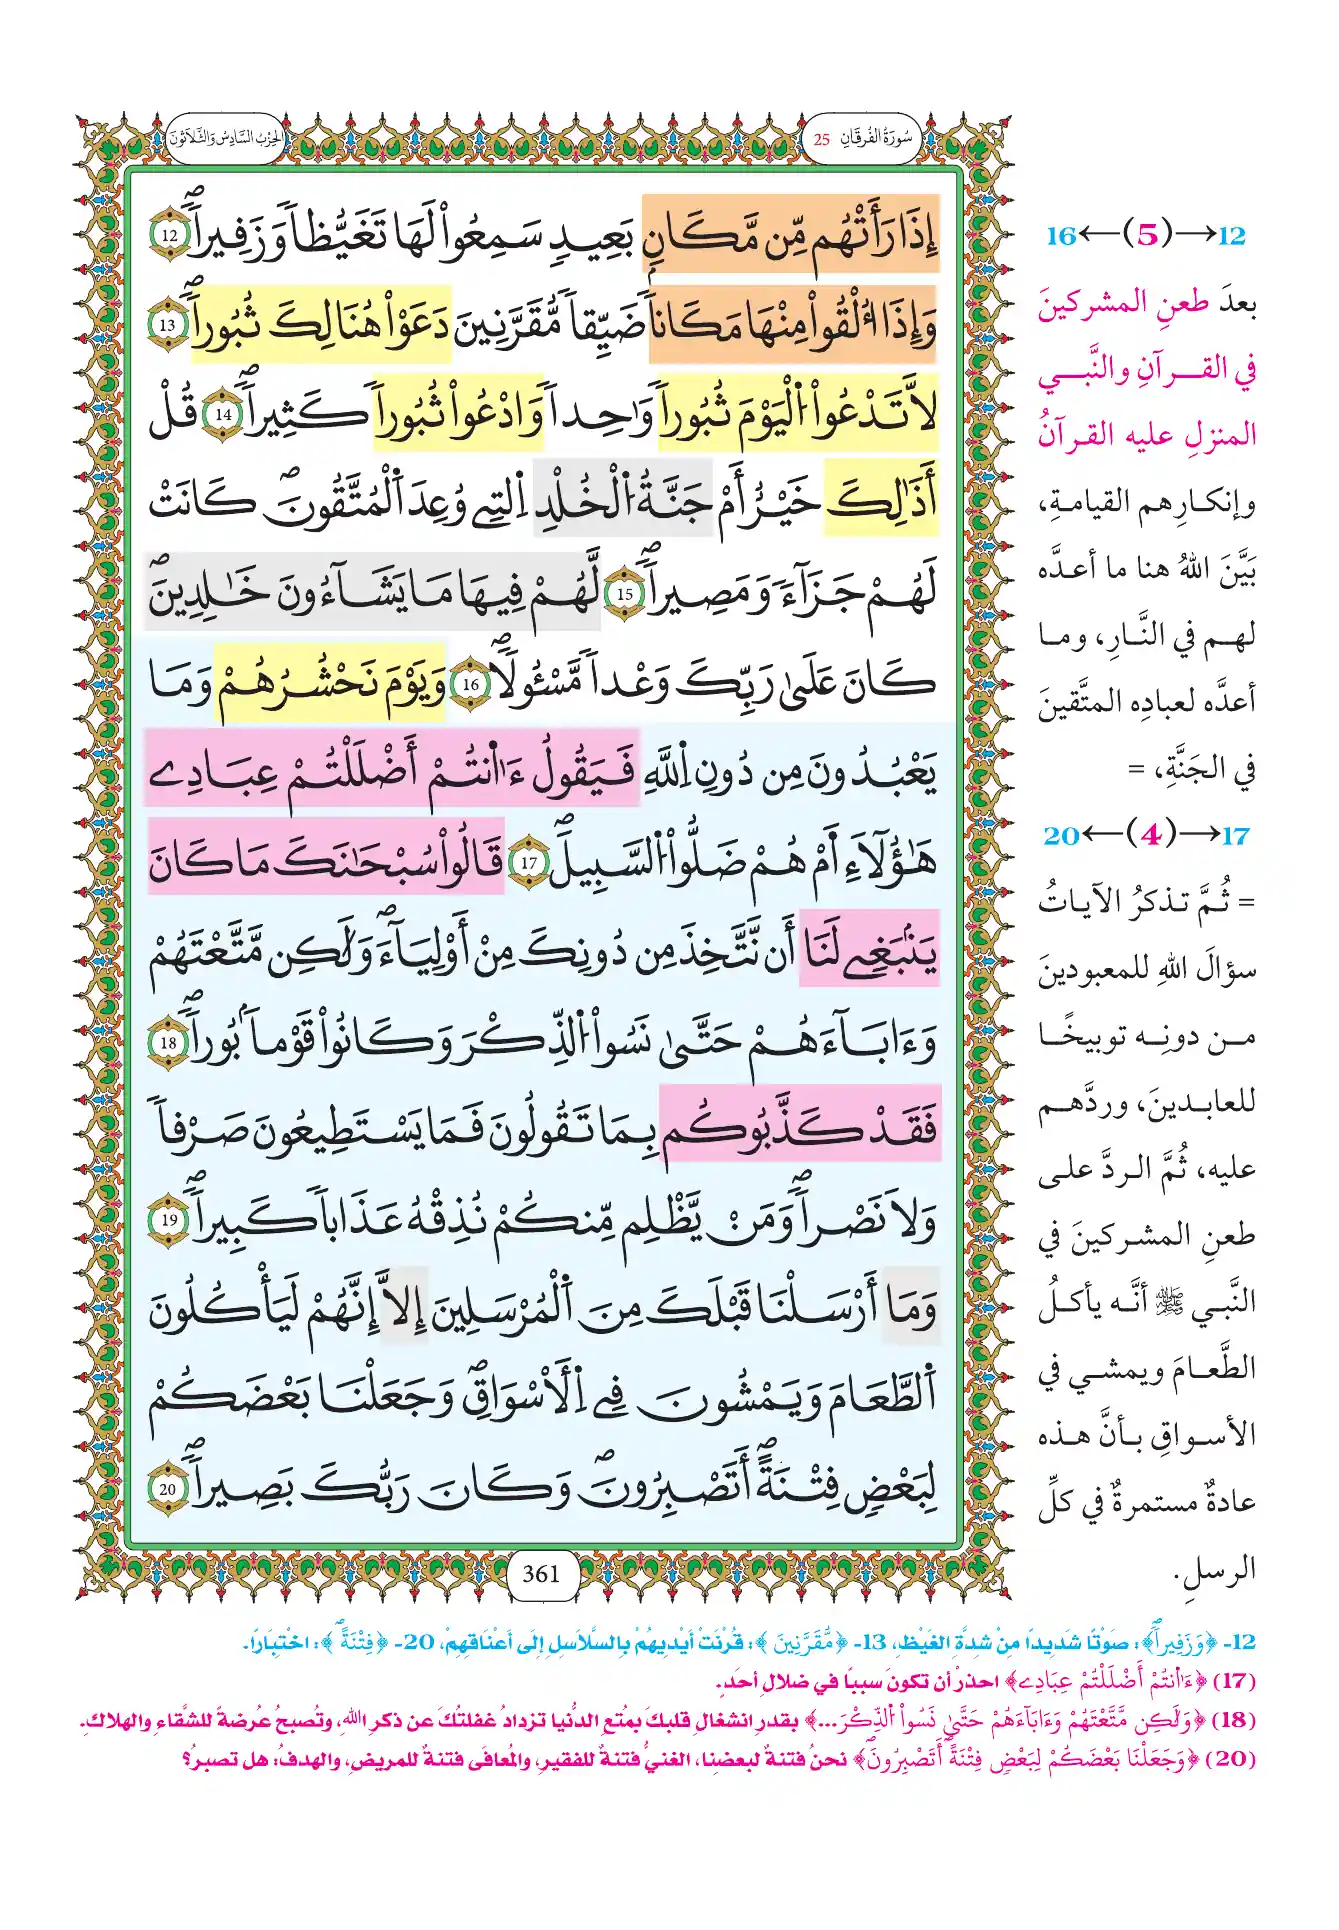 سُورَةُ الفُرقَانِ 25
الحِزْبُ السَّادِسُ وَالثَّلَاثُونَ
إِذَا رَأَتْهُم مِّن مَّكَانِۢ بَعِيدٖ سَمِعُواْ لَهَا تَغَيُّظاٗ وَزَفِيراٗۖ 12
وَإِذَا أُلْقُواْ مِنْهَا مَكَاناٗ ضَيِّقاٗ مُّقَرَّنِينَ دَعَوْاْ هُنَالِكَ ثُبُوراٗۖ 13
لَّا تَدْعُواْ اُلْيَوْمَ ثُبُوراٗ وَٰحِداٗ وَادْعُواْ ثُبُوراٗ كَثِيراٗۖ 14 قُلْ
أَذَٰلِكَ خَيْرٌ أَمْ جَنَّةُ اُلْخُلْدِ اِلتِے وُعِدَ اَلْمُتَّقُونَۖ كَانَتْ
لَهُمْ جَزَآءٗ وَمَصِيراٗۖ 15 لَّهُمْ فِيهَا مَا يَشَآءُونَ خَٰلِدِينَۖ
كَانَ عَلَىٰ رَبِّكَ وَعْداٗ مَّسْـُٔولاٗۖ 16 وَيَوْمَ نَحْشُرُهُمْ وَمَا
يَعْبُدُونَ مِن دُونِ اِللَّهِ فَيَقُولُ ءَآنتُمْ أَضْلَلْتُمْ عِبَادِے
هَٰٓؤُلَآءِ أَمْ هُمْ ضَلُّواْ اُلسَّبِيلَۖ 17 قَالُواْ سُبْحَٰنَكَ مَا كَانَ
يَنۢبَغِے لَنَا أَن نَّتَّخِذَ مِن دُونِكَ مِنْ أَوْلِيَآءَۖ وَلَٰكِن مَّتَّعْتَهُمْ
وَءَابَآءَهُمْ حَتَّىٰ نَسُواْ اُلذِّكْرَ وَكَانُواْ قَوْماَۢ بُوراٗۖ 18
فَقَدْ كَذَّبُوكُم بِمَا تَقُولُونَ فَمَا يَسْتَطِيعُونَ صَرْفاٗ
وَلَا نَصْراٗۖ وَمَنْ يَّظْلِم مِّنكُمْ نُذِقْهُ عَذَاباٗ كَبِيراٗۖ 19
وَمَا أَرْسَلْنَا قَبْلَكَ مِنَ اَلْمُرْسَلِينَ إِلَّا إِنَّهُمْ لَيَأْكُلُونَ
اَلطَّعَامَ وَيَمْشُونَ فِے اِلْأَسْوَاقِۖ وَجَعَلْنَا بَعْضَكُمْ
لِبَعْضٖ فِتْنَةًۖ أَتَصْبِرُونَۖ وَكَانَ رَبُّكَ بَصِيراٗۖ 20
361
12→(5)←16
بعدَ طعنِ المشركينَ
في القرآنِ والنَّبي
المنزلِ عليه القرآنُ
وإنكارِهم القيامةِ،
بَيَّنَ اللهُ هنا ما أعدَّه
لهم في النَّارِ، وما
أعدَّه لعبادِه المتَّقينَ
في الجَنَّةِ، =
17→(4)←20
= ثُمَّ تذكرُ الآياتُ
سؤالَ اللهِ للمعبودينَ
من دونِه توبيخًا
للعابدينَ، وردَّهم
عليه، ثُمَّ الردَّ على
طعنِ المشركينَ في
النَّبي ﷺ أنَّه يأكلُ
الطَّعامَ ويمشي في
الأسواقِ بأنَّ هذه
عادةٌ مستمرةٌ في كلِّ
الرسلِ.
12- ﴿وَزَفِيراٗۖ﴾: صَوْتًا شَدِيدًا مِنْ شِدَّةِ الغَيْظِ، 13- ﴿مُّقَرَّنِينَ﴾: قُرِنَتْ أَيْدِيهُمْ بِالسَّلَاسِلِ إِلَى أَعْنَاقِهِمْ، 20- ﴿فِتْنَةًۖ﴾: اخْتِبَارًا.
(17) ﴿ءَآنتُمْ أَضْلَلْتُمْ عِبَادِے﴾ احذرْ أن تكونَ سببًا في ضلالِ أحدٍ.
(18) ﴿وَلَٰكِن مَّتَّعْتَهُمْ وَءَابَآءَهُمْ حَتَّىٰ نَسُواْ اُلذِّكْرَ...﴾ بقدرِ انشغالِ قلبكَ بمُتعِ الدُّنيا تزدادُ غفلتُكَ عن ذكرِ اللهِ، وتُصبحُ عُرضةً للشَّقاءِ والهلاكِ.
(20) ﴿وَجَعَلْنَا بَعْضَكُمْ لِبَعْضٖ فِتْنَةًۖ أَتَصْبِرُونَۖ﴾ نحنُ فتنةٌ لبعضِنا، الغنيُّ فتنةٌ للفقيرِ، والمُعافَى فتنةٌ للمريضِ، والهدفُ: هل تصبرُ؟